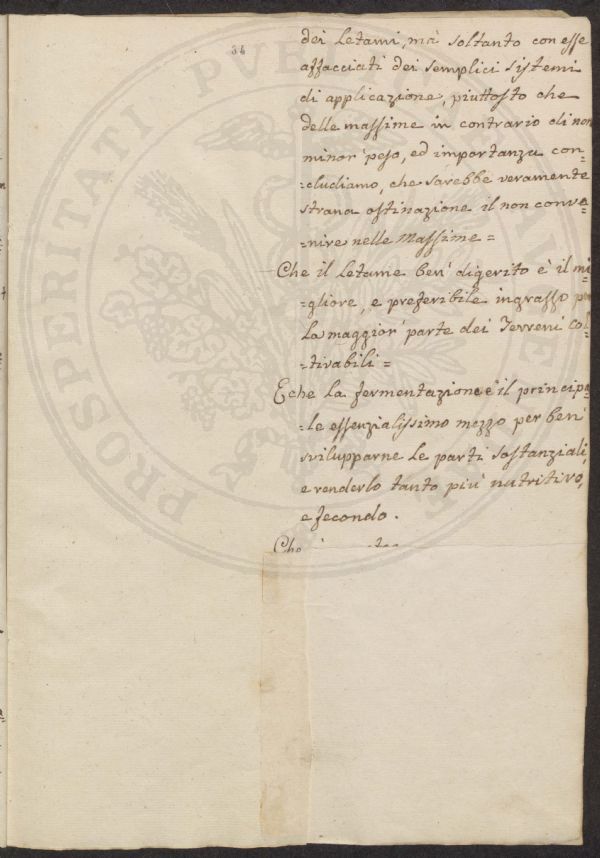 34
dei Letami, mà soltanto con esse
affacciati dei semplici sistemi
di applicazione, piuttosto che
delle massime in contrario di non
minor' peso, ed importanza con=
=cludiamo, che sarebbe veramente
strana ostinazione il non conve=
=nire nelle Massime=
Che il Letame ben' digerito è il mi=
=gliore, e preferibile ingrasso
La maggior' parte dei Terreni col=
=tivabili=
E che la fermentazione è il principa=
=le essenzialissimo mezzo per ben'
svilupparne Le parti sostanziali,
e renderlo tanto piu' nutritivo,
e fecondo.
Che
PROSPERITATI PUBLICAE